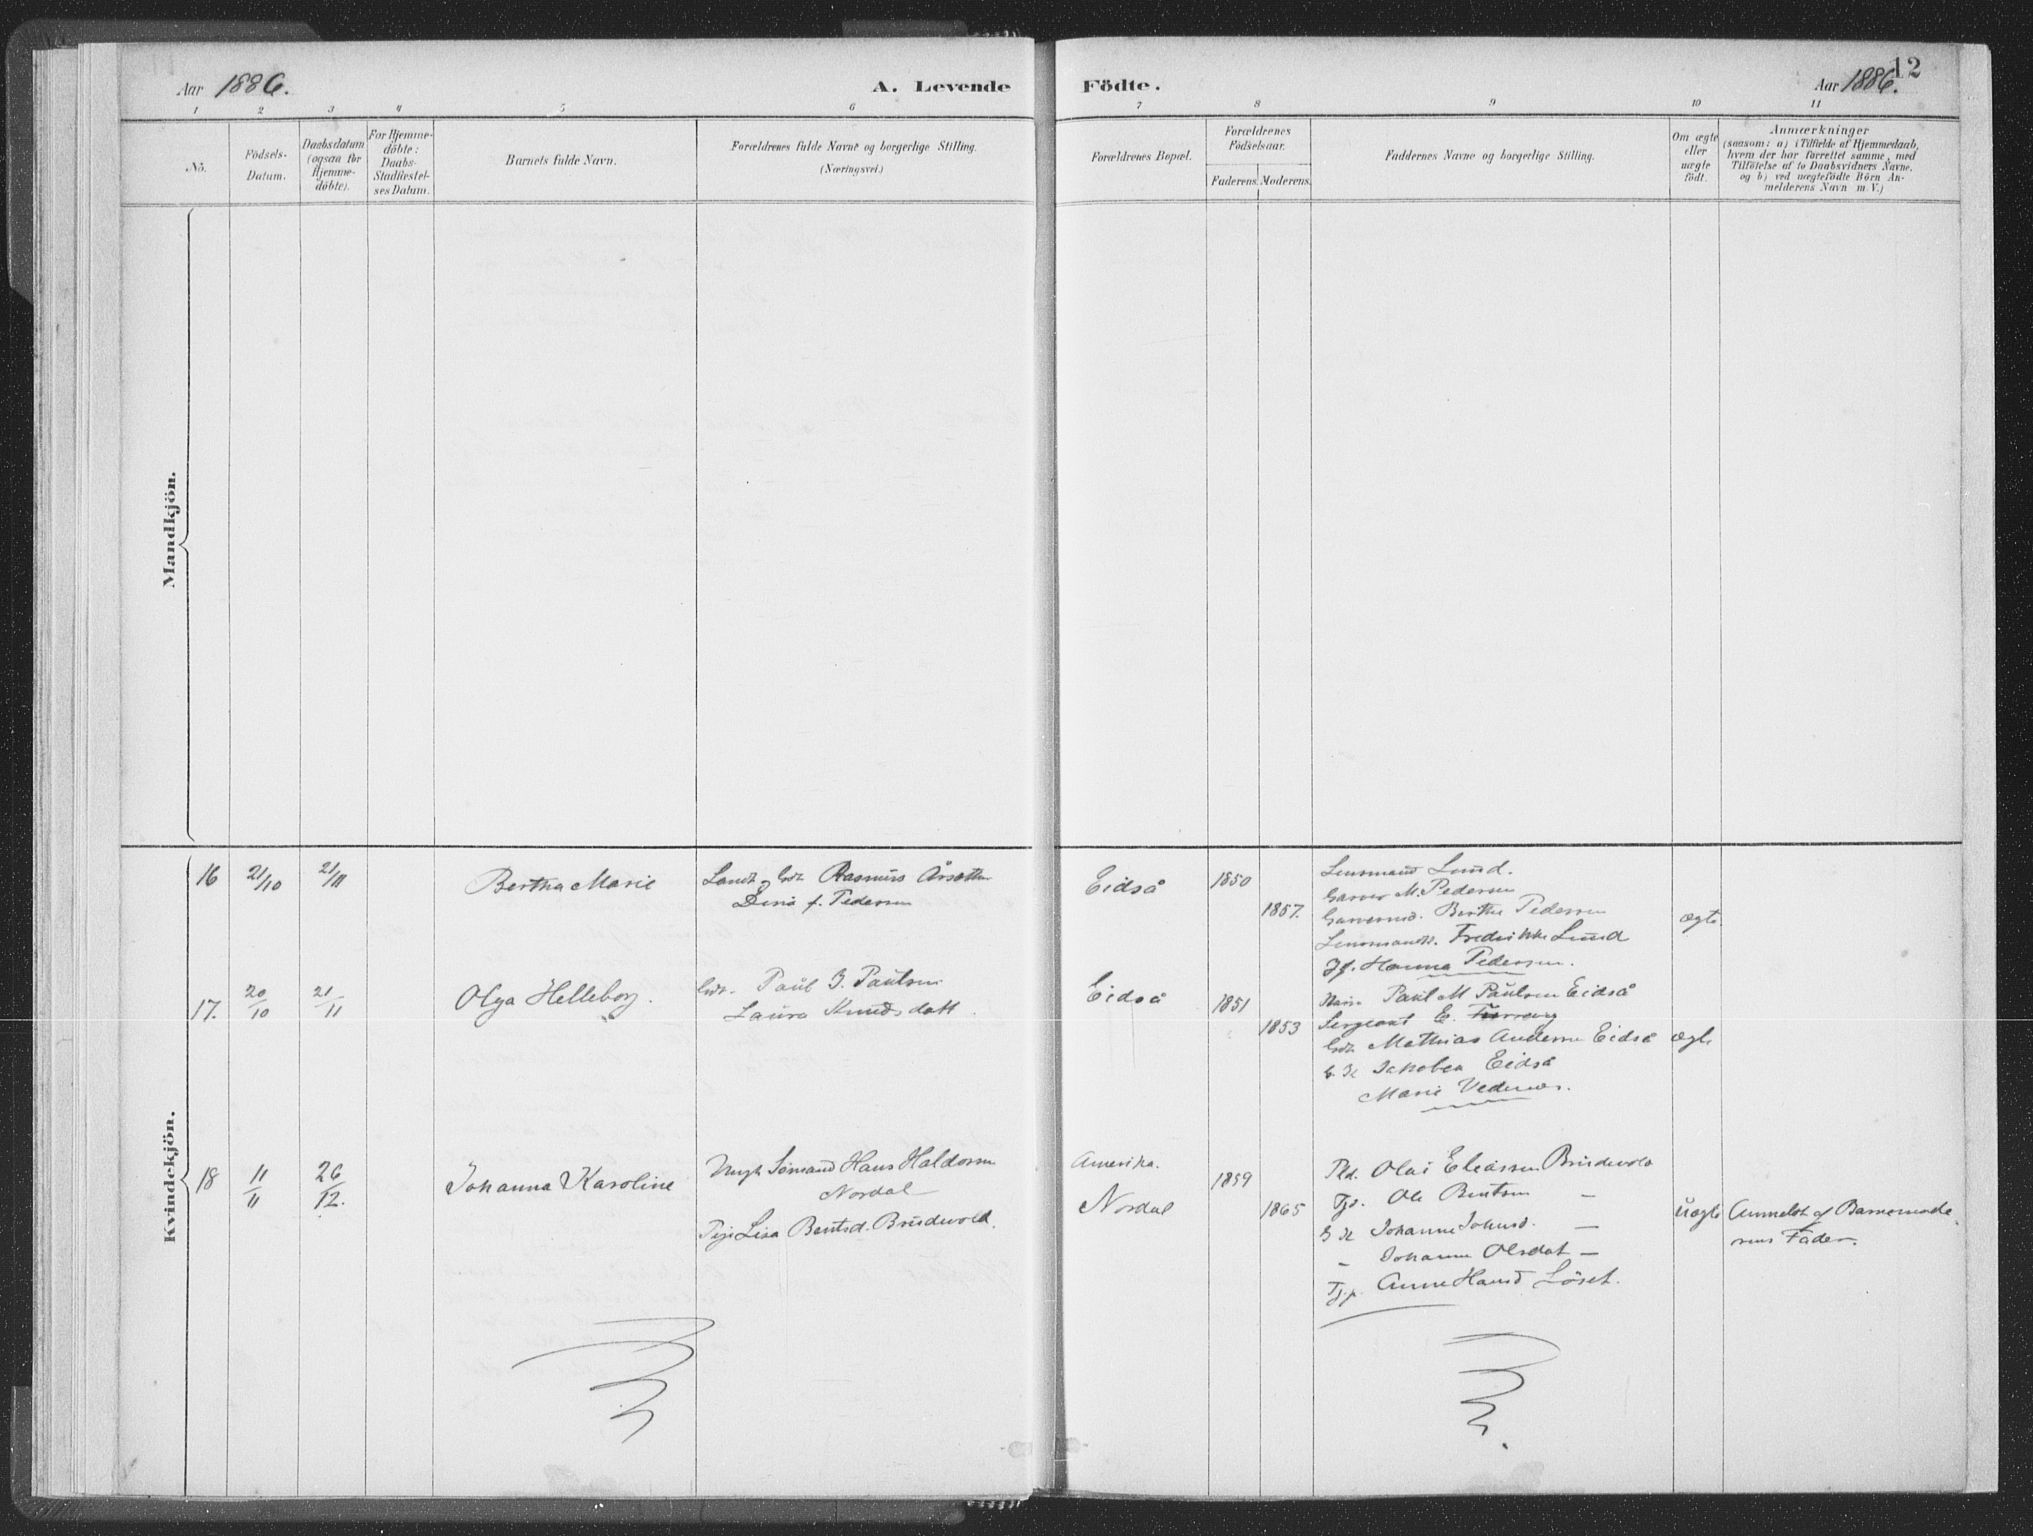 Aar 1886.
A. Levende Födte.
Aar 1886.
12
1 2 3 4 5 6 7 8 9 10 11
No.
Födsels-
Datum.
Daabsdatum
(ogsaa for
Hjemme-
döbte).
For Hjemme-
döbte:
Daabs-
Stadfæstel-
ses Datum.
Barnets fulde Navn.
Forældrenes fulde Navne og borgerlige Stilling.
(Næringsvei.)
Forældrenes Bopæl.
Forældrenes
Födselsaar.
Faderens. Moderens.
Faddernes Navne og borgerlige Stilling.
Om ægte
eller
uægte
födt.
Anmærkninger
(saasom: a) i Tilfælde af Hjemmedaab,
hvem der har forrettet samme, med
Tilföielse af to Daabsvidners Navne.
og b) ved uægtefödte Börn An-
melderens Navn m. V.)
Mandkjön.
Kvindekjön.
16 21/10 21/11 Bertha Marie
Rasmus Årseth
Dina f. Pedersen
Eidså 1850
1857.
Lensmand Lund.
Garver M. Pedersen
Berthe Pedersen
Fredrikke Lund
Hanna Pedersen.
ægte
17. 20/10 21/11 Olga Helleborg.
Paul J. Paulsen
Laura Knudsdatt
Eidså 1851
1853
Paul M Paulsen Eidså
Sergeant E.
Mathias Andersen Eidså
Jakobea Eidså
Marie Vedenes.
ægte
18 11/11 26/12. Johanna Karoline
Ungk Sömand Hans Haldorsen
Nordal
Pige Lisa Bentsd. Brudevold.
Amerika.
Nordal
1859
1865
Olai Eliassen Brudevold
Ole Bentsen —
Johanne Johnsd. —
Johanne Olsdat —
Anne Hansd Löset.
uægte
Anmeldt af Barnemode-
rens Fader.